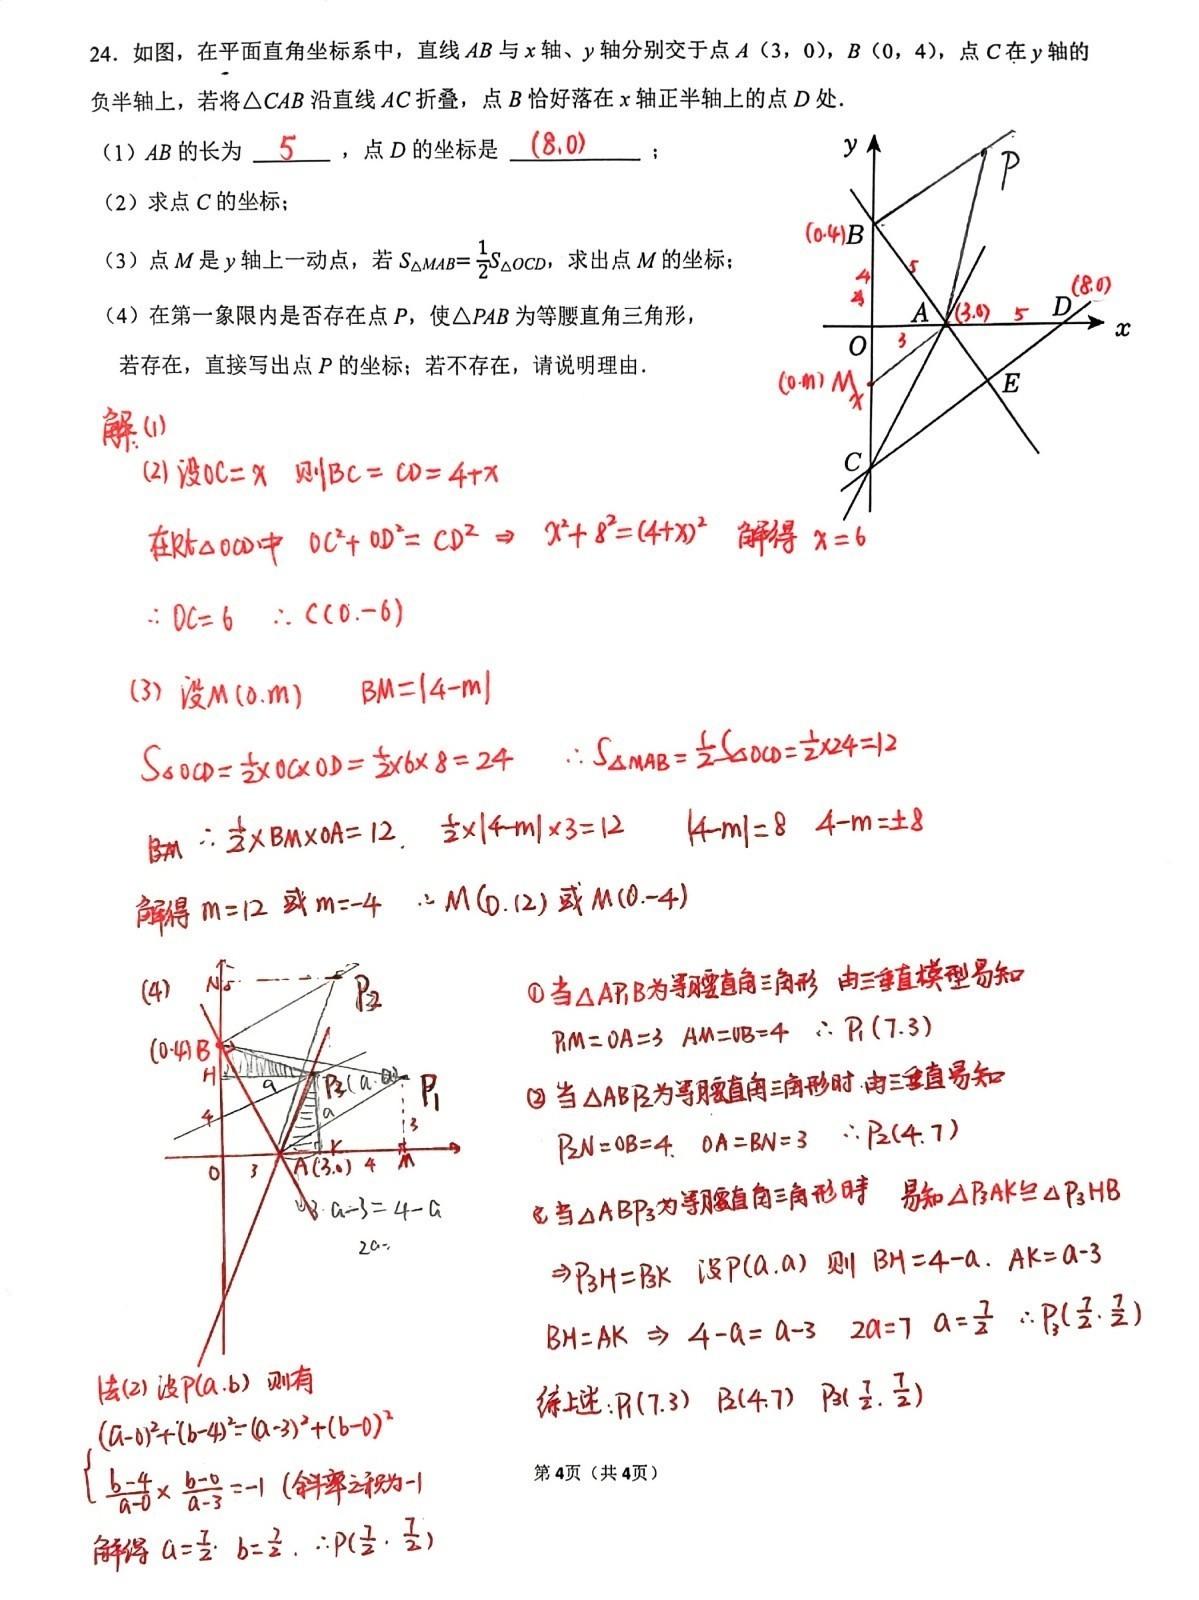 24．如图，在平面直角坐标系中，直线 AB 与 x 轴、y 轴分别交于点 A（3，0），B（0，4），点 C 在 y 轴的
负半轴上，若将△CAB 沿直线 AC 折叠，点 B 恰好落在 x 轴正半轴上的点 D 处．
（1）AB 的长为 5 ，点 D 的坐标是 (8.0) ；
（2）求点 C 的坐标；
（3）点 M 是 y 轴上一动点，若 S△MAB=1/2S△OCD，求出点 M 的坐标；
（4）在第一象限内是否存在点 P，使△PAB 为等腰直角三角形，
若存在，直接写出点 P 的坐标；若不存在，请说明理由．
y
P
(0.4)B
4
5
A (3.0) 5 D (8.0)
x
O 3
(0.m) M
x
E
C
解:(1)
(2) 设OC=x 则BC=CD=4+x
在Rt△OCD中 OC²+OD²=CD² ⇒ x²+8²=(4+x)² 解得 x=6
∴OC=6 ∴C(0.-6)
(3) 设M(0.m) BM=|4-m|
S△OCD=1/2×OC×OD=1/2×6×8=24 ∴S△MAB=1/2S△OCD=1/2×24=12
∴1/2×BM×OA=12. 1/2×|4-m|×3=12 |4-m|=8 4-m=±8
解得 m=12 或 m=-4 ∴M(0.12) 或 M(0.-4)
(4)
N
P2
(0.4)B
H
a
P3(a.a)
a
P1
4
3
O 3 A(3.0) K 4 M
a-3=4-a
2a=
①当△AP1B为等腰直角三角形 由三垂直模型易知
P1M=OA=3 AM=OB=4 ∴P1(7.3)
②当△ABP2为等腰直角三角形时.由三垂直易知
P2N=OB=4. OA=BN=3 ∴P2(4.7)
当△ABP3为等腰直角三角形时 易知△P3AK≌△P3HB
⇒P3H=P3K 设P(a.a) 则 BH=4-a. AK=a-3
BH=AK ⇒ 4-a=a-3 2a=7 a=7/2 ∴P3(7/2.7/2)
综上述:P1(7.3) P2(4.7) P3(7/2.7/2)
法(2) 设P(a.b) 则有
(a-0)²+(b-4)²=(a-3)²+(b-0)²
b-4/a-0 × b-0/a-3 =-1 (斜率之积为-1
解得 a=7/2. b=7/2. ∴P(7/2.7/2)
第 4页（共 4页）